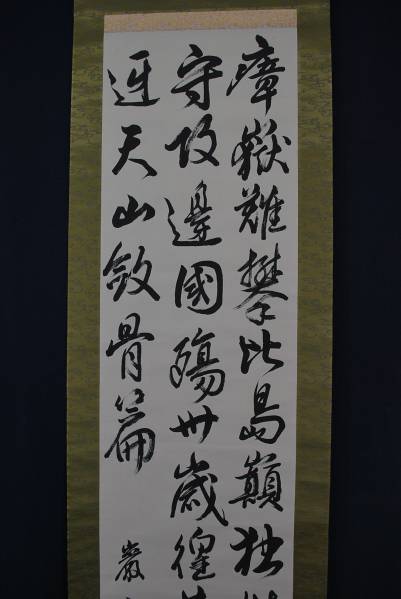 瘴嶽難攀比島巔独
守攻邊國殤卅歳徨
迓天山斂骨篇
巖